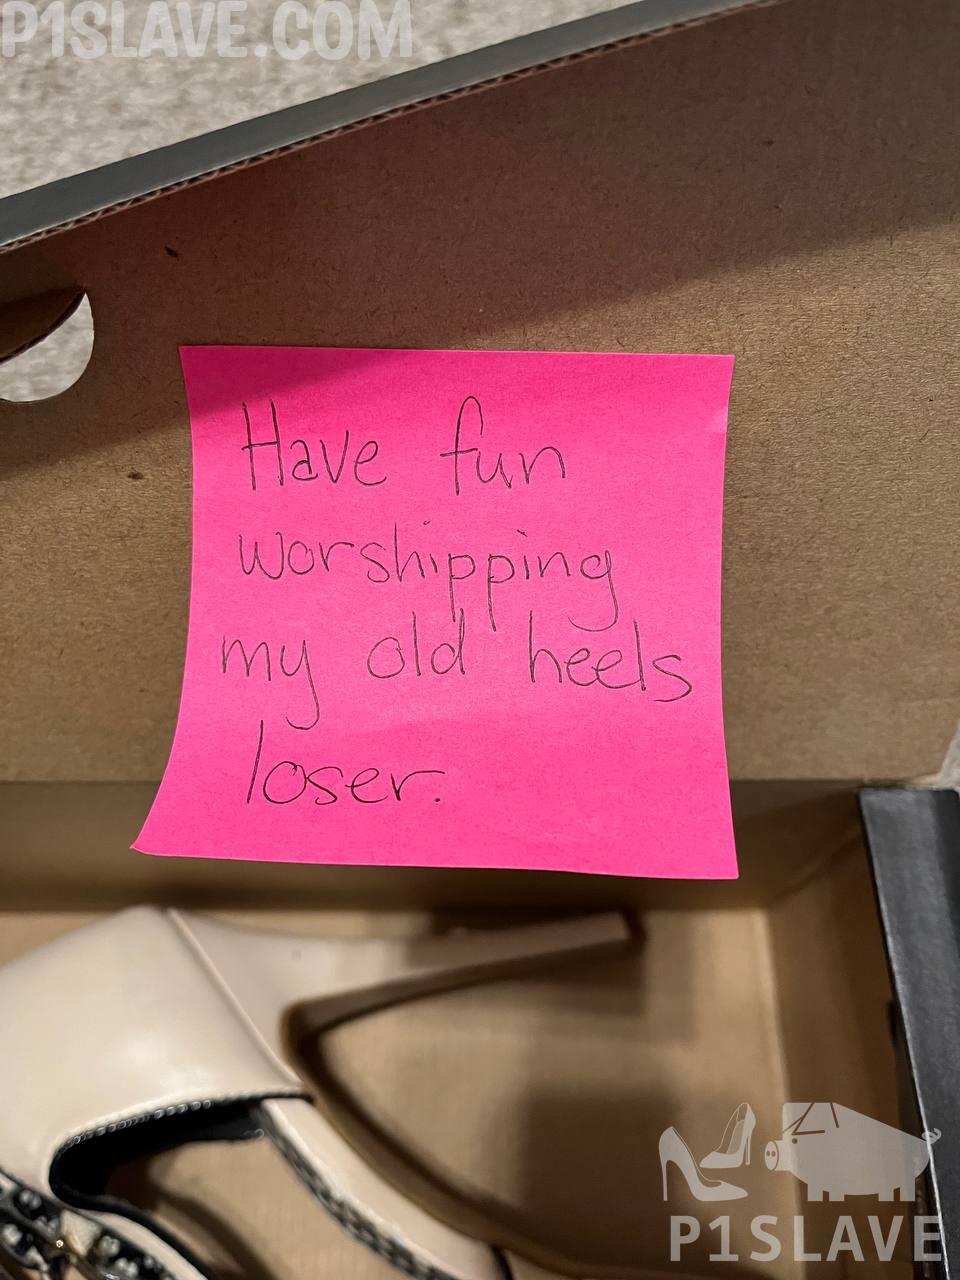 P1SLAVE.COM
Have fun
worshipping
my old heels
loser.
P1SLAVE